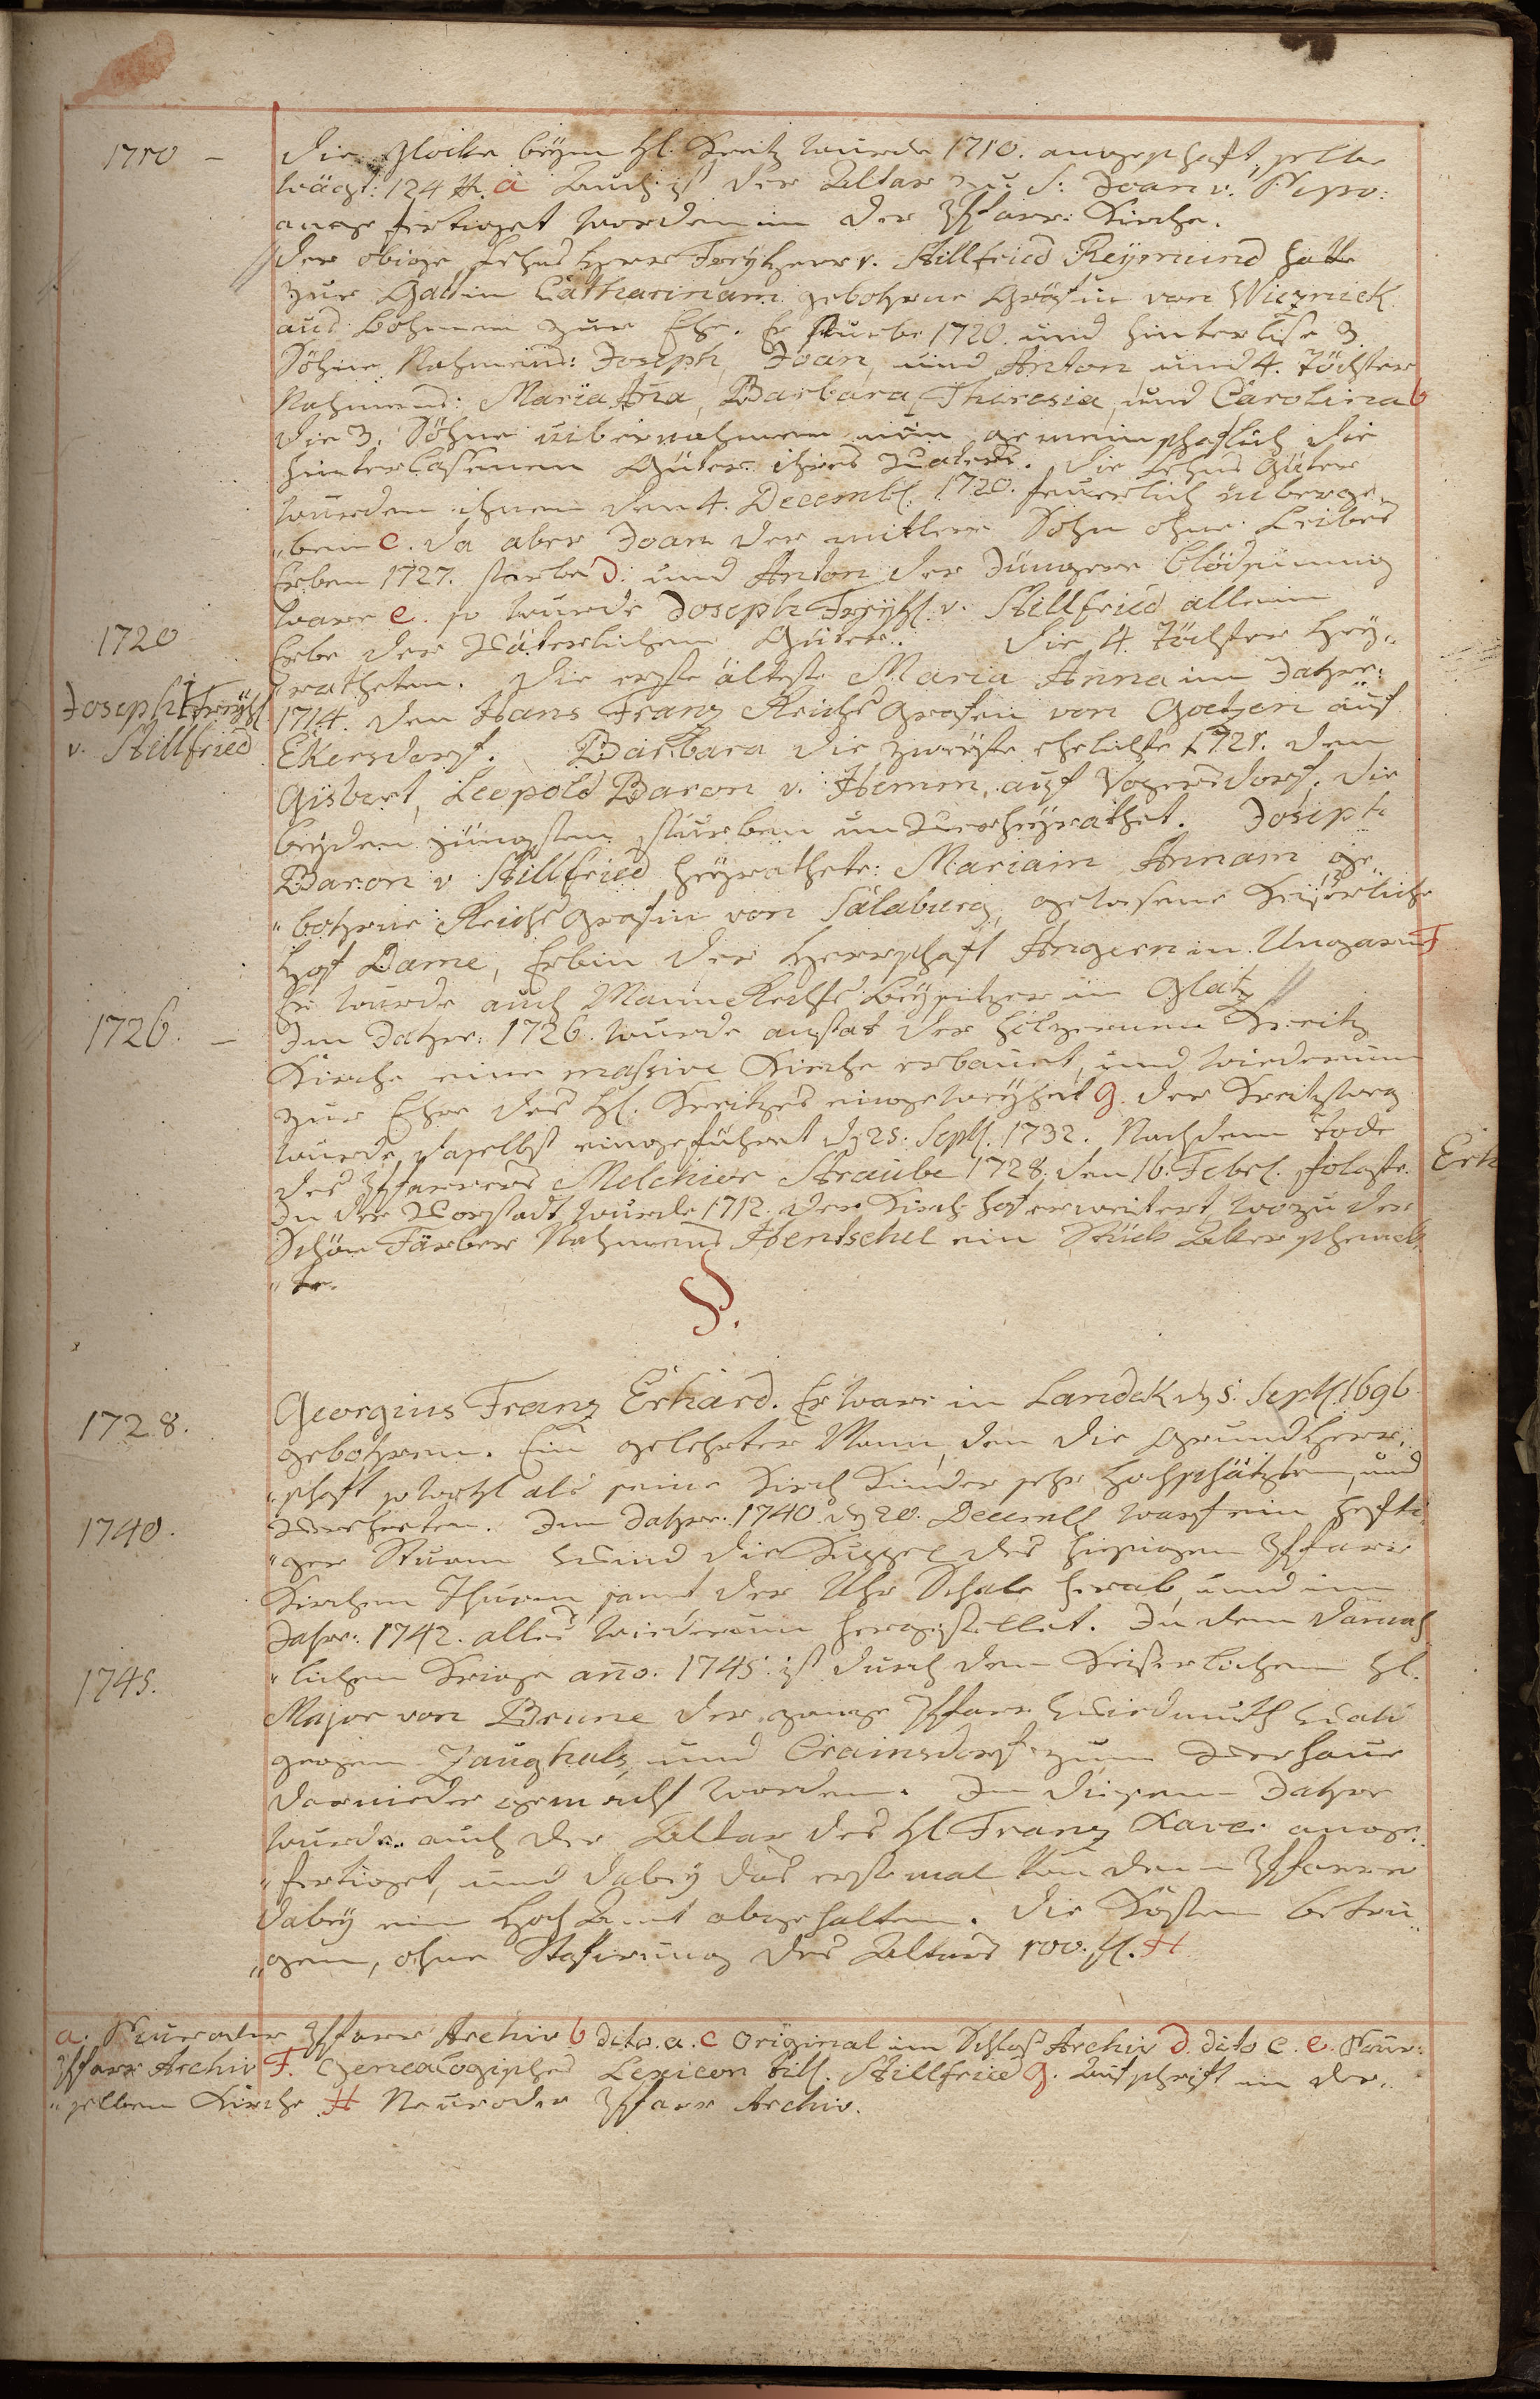 1710 –
Die Glocke beym hl. Kreitz wurde 1710. angeschaft, selbe
wägt: 124 ℔. a Auch ist der Altar zu S: Joan v. Nepo:
ange fertiget worden in der Pfarr Kirche.
Der obige Lehns Herr Freyherr v. Stillfried Reymund hatte
zur Gattin Catharinam gebohrne Gräfin von Wieznick
aus Bohmen zur Ehe. Er sturbe 1720. und hinterlise 3
Söhne Nahmens: Joseph, Joan, und Anton, und 4. Töchter
Nahmens: Maria Aña, Barbara, Theresia, und Carolina b
Die 3. Söhne uibernahmen nun gemeinschaftlich die
hinterlassenen Güter ihres Vaters. Die Lehns Güter
wurden ihnen den 4. Decembl. 1720. feuerlich überge„
„ben c. Da aber Joan der mitlere Sohn ohne Leibes
Erben 1727. starbe d: und Anton der Jüngere blödsinnig
ware e. so wurde Joseph Freyh. v. Stillfried allein
1720
Erbe der Väterlichen Güter. Die 4. Töchter Hey„
Joseph Freyh.
v. Stillfried
ratheten. Die erste älteste Maria Anna im Jahre:
1714. den Hans Franz Reichs Grafen von Goetzen auf
Ekersdorf. Barbara die zweyte ehelichte 1721. den
Gisbert, Leopold Baron v. Hemm, auf Vogersdorf. Die
beyden jüngsten sturben unverheyrathet. Joseph
Baron v Stillfried heyrathete: Mariam Annam ge
„bohrne Reichs Grafin von Salaburg, gewesene Keiserliche
Hof Dame, Erbin der Herrschaft Angern in Ungarn F
Er wurde auch Manns Rechts Beysitzer in Glatz
1726. –
Im Jahre: 1726. wurde anstat der hölzernen Kreitz
Kirche eine massive Kirche erbauet, und wiederum
zur Ehre des hl. Kreitzes eingeweyhet g. Der Kreitzweg
wurde daselbst eingeführet d 25. Septb. 1732. Nach dem Tode
des Pfarrers Melchior Straube 1728. den 16. Febrl. folgte.
Erh
In der Vorstadt wurde 1712. der Kirch hof erweitert wozu der
Schön Färber Nahmens Hentschel ein Stück Aker schenck
„te.
§.
1728.
Georgius Franz Erhard. Er ware in Landek d 5. Septb. 1696
gebohren. Ein gelehrter Mann, den die Grundherr„
„schaft so wohl als seine Kirch Kinder sehr hochschätzten, und
1740.
verehrten. Im Jahre. 1740. d 20. Decembl. warf ein hefti
„ger Sturm Wind die Kuppel des hiesigen Pfarr
Kirchen Thurm samt der Uhr Schale herab, und im
Jahre: 1742. alles wiederum hergestellet. In dem damah
1745.
„lichen Kriege año. 1745. ist durch den Keiserlichen H.
Major von Brune der ganze Pfarr Wiedmuth Wald
gegen Zaughals, und Crainsdorf zum Verhaue
darnieder gemacht worden. In diesem Jahre
wurde auch der Altar des hl Franz Xaver ange„
„fertiget, und dabey das erste mal von dem Pfarrer
dabey ein Hoch Amt abgehalten. Die Kosten betru„
„gen, ohne Stafirung des Altars 100. fl. H
a. Neuroder Pfarr Archiv b dito. a. c Original im Schloß Archiv d. dito c. e. Neur:
Pfarr Archiv F. Genealogisches Lexicon Titl. Stillfried g. Aufschrift in der„
„selben Kirche H Neuroder Pfarr Archiv.